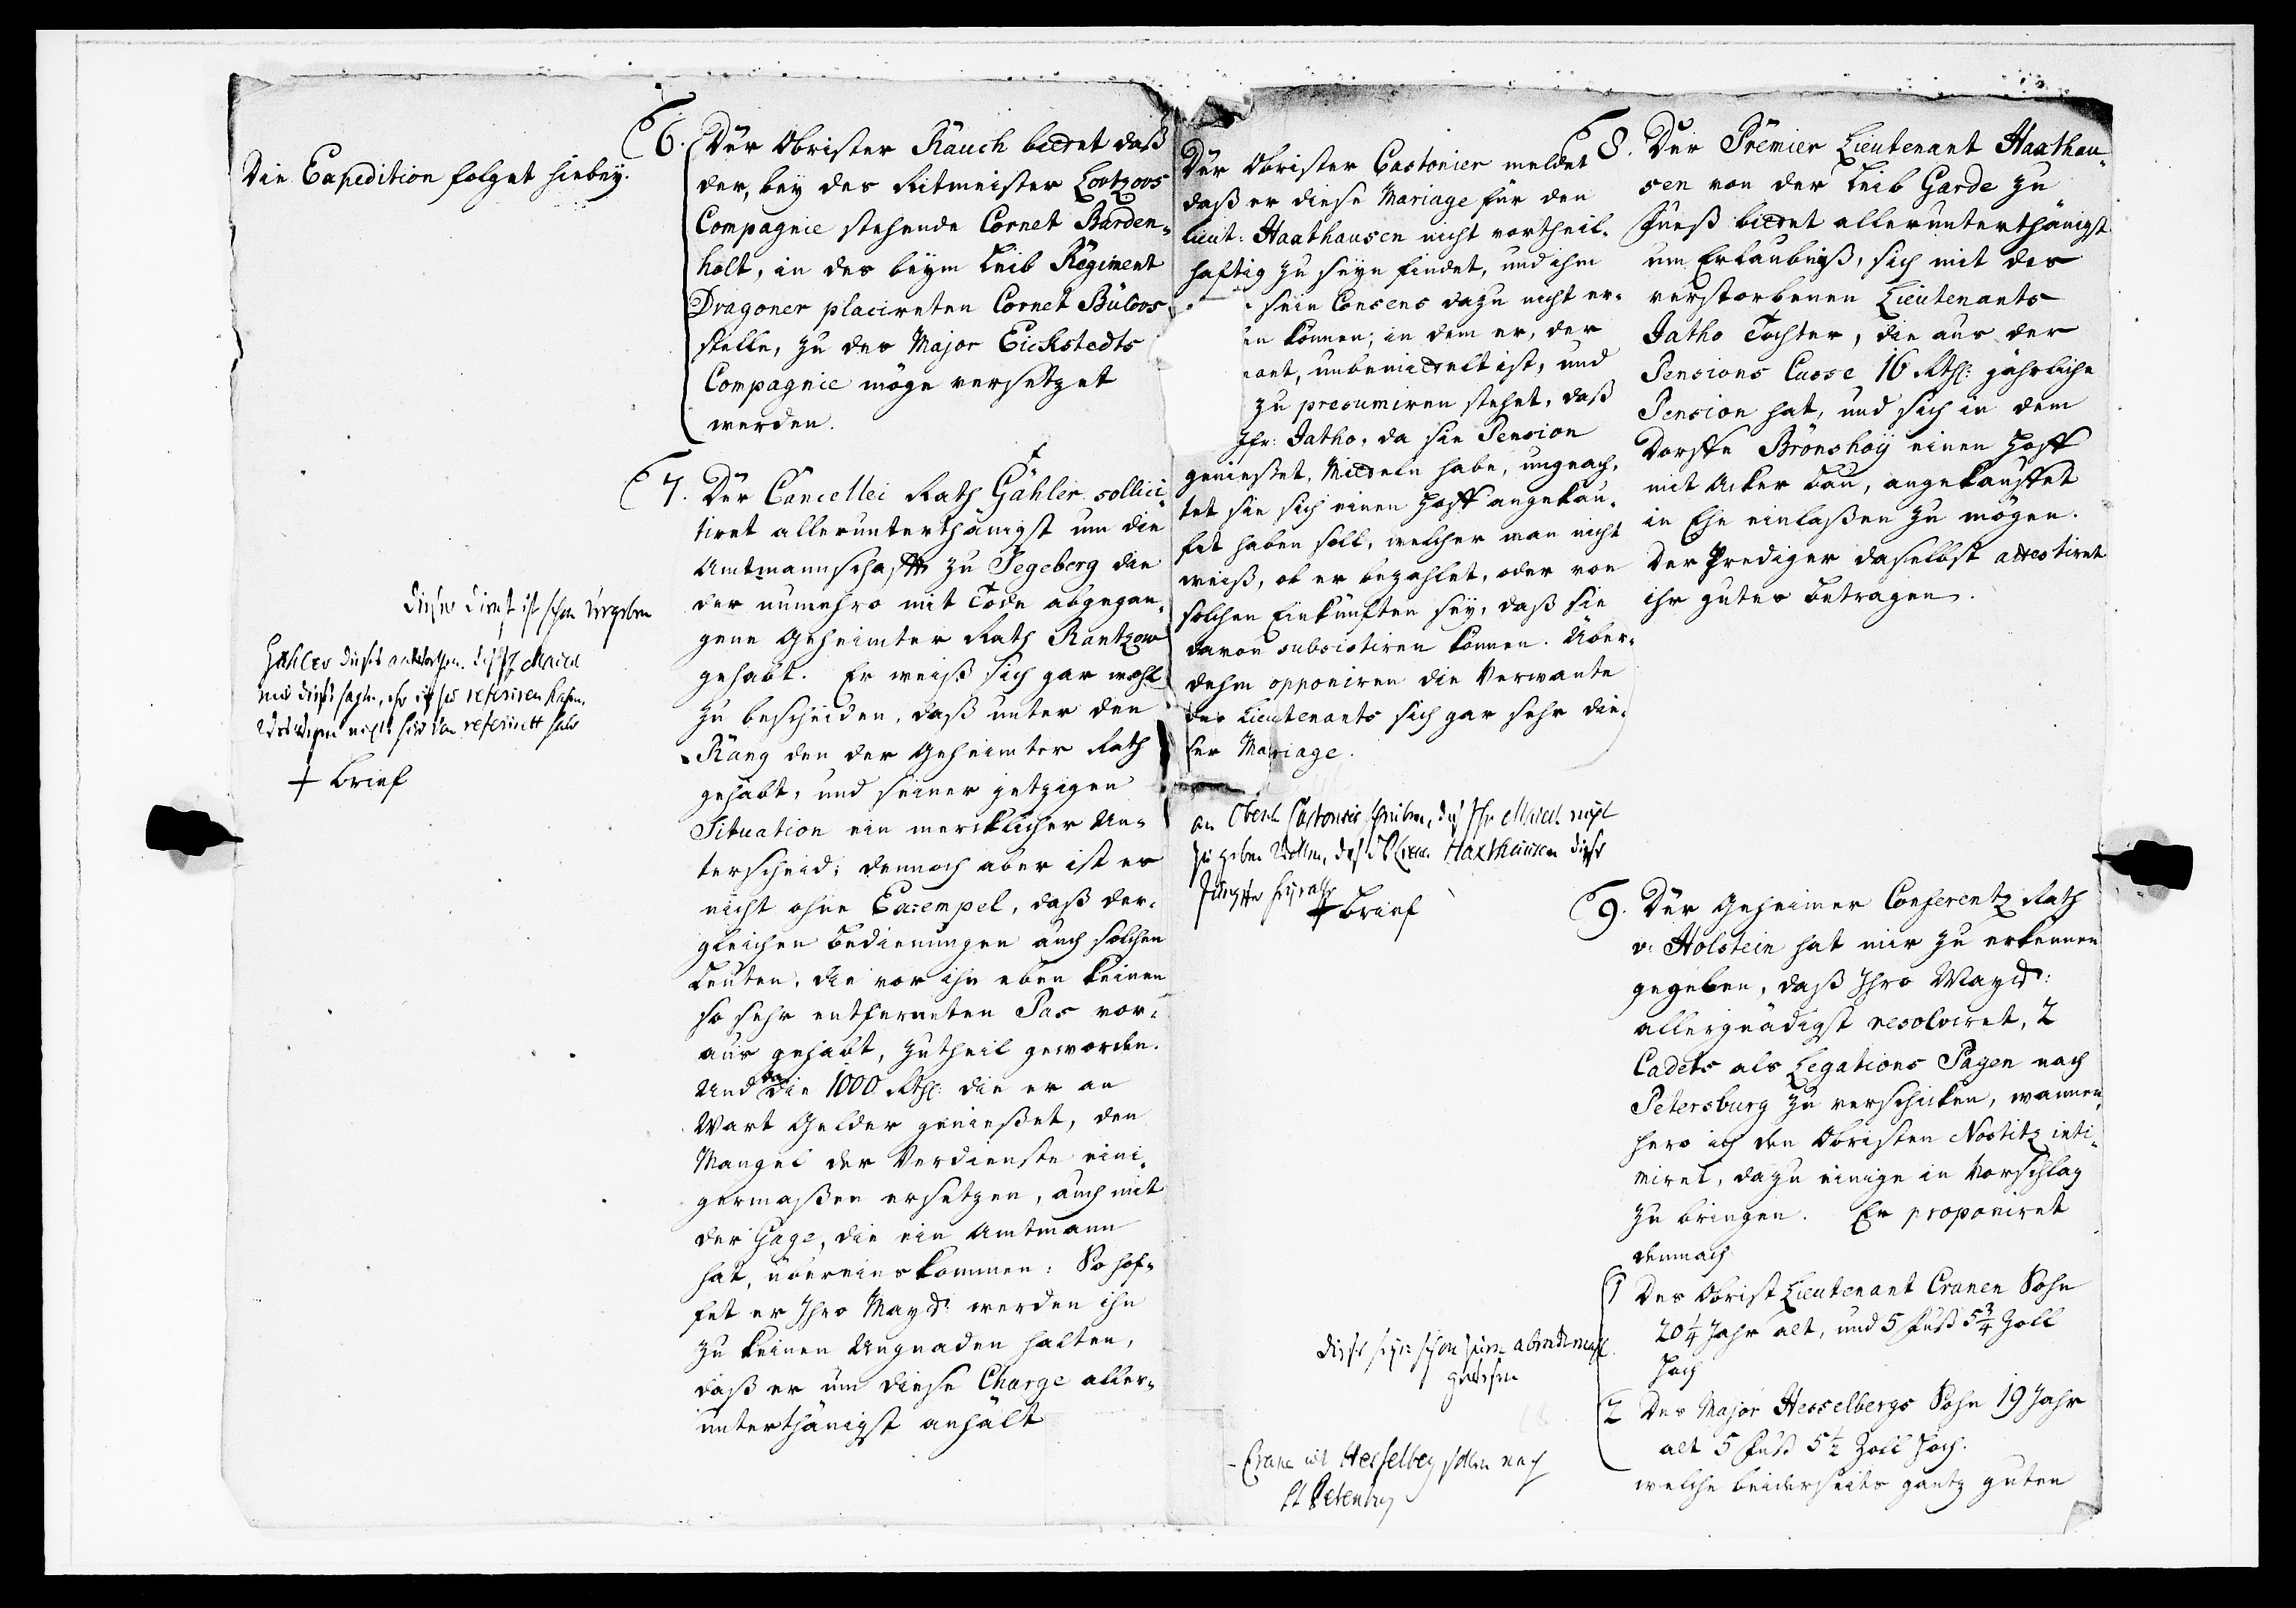 Die Expedition folget hiebey.
6. Der Obrister Rauch bittet daß
der, bey des Ritmeister Lortzovs
Compagnie stehende Cornet Barden-
holt, in des beym Leib Regiment
Dragoner placireten Cornet Bülovs
stelle, zu des Major Eickstedts
Compagnie möge versetzet
werden.
7. Der Cancellei Rath Gähler sollici-
tiret allerunterthänigst um die
Amtmannschafft zu Segeberg die
der numehro mit Tode abgegan-
gene Geheimter Rath Rantzow
gehabt. Er weiß sich gar wohl
zu bescheiden, daß unter den
Rang den der Geheimter Rath
gehabt, und seiner jetzigen
Situation ein mercklicher Un-
terscheid; dennoch aber ist es
nicht ohne Exempel, daß der-
gleichen Bedienungen auch solchen
Leuten, die vor ihn eben keinen
so sehr entferneten Pas vor-
aus gehabt, zutheil geworden.
Und da die 1000 Rthl: die er an
Wart Gelder genießet, den
Mangel der Verdienste eini-
germaßen ersetzen, auch mit
der Gage, die ein Amtmann
hat, übereinskommen: So hof-
fet er Ihro Mayt: werden ihn
zu keinen Ungnaden halten,
daß er um diese Charge aller-
unterthänigst anhält
dieser dienst ist schon vergeben
Gähler dieses antworten.
mir dieses sagte, ehr ich es referiren
referirett habe
+ Brief
Der Obrister Castonier meldet
daß er diese Mariage für den
Lieut: Haxthausen nicht vortheil-
hafftig zu seyn findet, und ihm
sein Consens dazu nicht er-
en können; in dem er, der
nant, unbemittelt ist, und
zu presumiren stehet, daß
Jfr: Jatho, da sie Pension
genießet, Mitteln habe, ungeach-
tet sie sich einen Hoff angekau-
fet haben soll, welcher man nicht
weiß, ob er bezahlet, oder von
solchen Einkünfften sey, daß sie
davon subsistiren können. Über-
dehm opponiren die Verwante
des Lieutenants sich gar sehr die-
ser Mariage.
an Oberst Castonier schreiben, daß Ihr Maiett nicht
zu geben wollen, daß Pr Lieu. Haxthausen diese
Jungffer heyrathe
+ Brief
8. Der Premier Lieutenant Haxthau-
sen von der Leib Garde zu
Fueß bittet allerunterthänigst
um Erlaubniß, sich mit des
verstorbenen Lieutenants
Jatho Tochter, die aus der
Pensions Casse 16 Rthl: jährliche
Pension hat, und sich in dem
Dorffe Brönshöy einen Hoff
mit Acker Bau, angekauffet
in Ehe einlaßen zu mögen.
Der Prediger daselbst attestiret
ihr gutes Betragen.
9. Der Geheimer Conferentz Rath
v: Holstein hat mir zu erkennen
gegeben, daß Ihro Mayt:
allergnädigst resolviret, 2
Cadets als Legations Pagen nach
Petersburg zu verschicken, wannen-
hero ich den Obristen Nostitz inti-
miret, dazu einige in Vorschlag
zu bringen. Er proponiret
demnach
1 Des Obrist Lieutenant Cranen Sohn
20 1/4 Jahr alt, und 5 Fuß 5 3/4 Zoll
hoch
2 Des Major Hesselbergs Sohn 19 Jahr
alt 5 Fuß 5 1/2 Zoll hoch.
welche beiderseits gantz guten
schon zum abendmahl
gewesen
Crane und Hesselberg sollen nach
St Petersburg